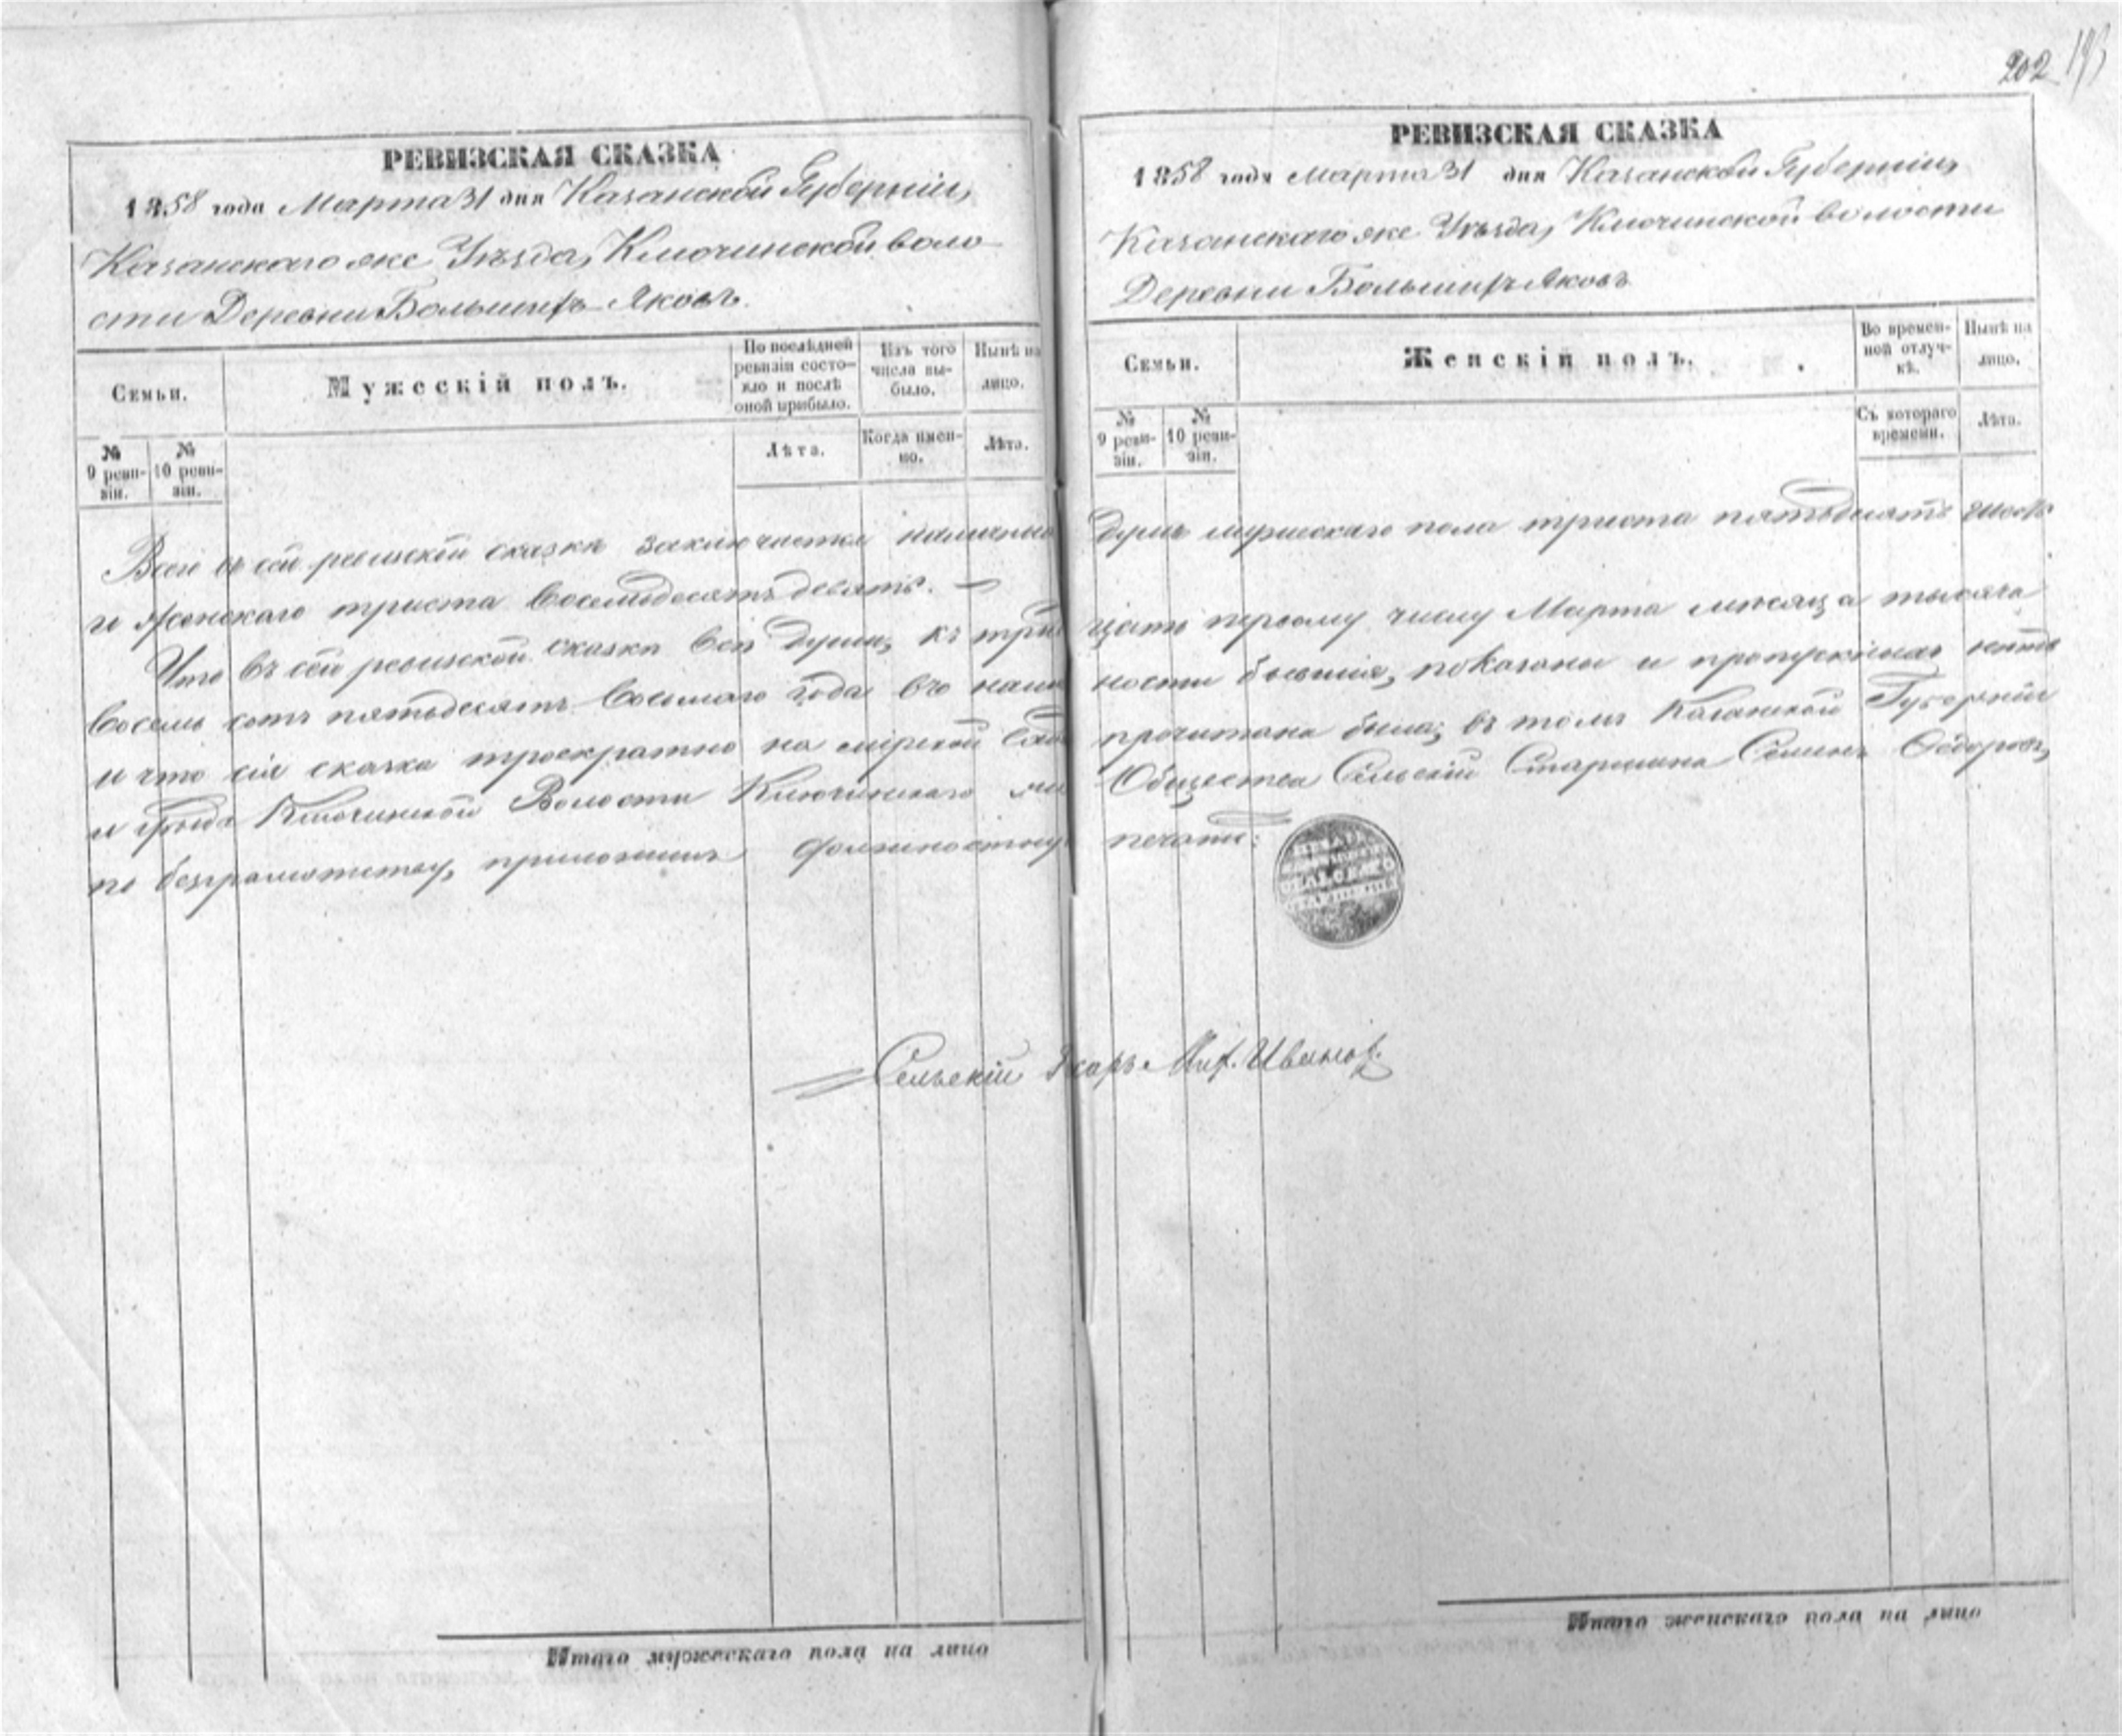 202
РЕВИЗСКАЯ СКАЗКА
1858 года Марта 31 дня Казанской Губерніи,
Казанскаго же Уѣзда, Ключинской воло-
сти Деревни Большихъ Яковъ.
Семьи.
Мужескій полъ.
По послѣдней ревизіи состо-
яло и послѣ оной прибыло.
Изъ того числа вы-
было.
Нынѣ на лицо.
№ 9 реви-
зіи.
№ 10 реви-
зіи.
Лѣта.
Когда имен-
но.
Лѣта.
РЕВИЗСКАЯ СКАЗКА
1858 года Марта 31 дня Казанской Губерніи,
Казанскаго же Уѣзда, Ключинской волости
Деревни Большихъ Яковъ
Семьи.
Женскій полъ.
Во времен-
ной отлуч-
кѣ.
Нынѣ на лицо.
№ 9 реви-
зіи.
№ 10 реви-
зіи.
Съ котораго времени.
Лѣта.
Всего въ сей ревизской сказкѣ заключается налично душъ мужескаго пола триста пятьдесятъ шесть
и женскаго триста восемьдесятъ девять. —
Что въ сей ревизской сказкѣ всѣ души, къ трид цать первому числу Марта мѣсяца тысяча
восемь сотъ пятьдесятъ восьмаго года въ налич ности бывшія, показаны и пропускныхъ нѣтъ
и что сія сказка троекратно на мірской прочитана была; въ томъ Казанской Губерніи
и Уѣзда Ключинской Волости Ключинскаго Общества Сельскій Старшина Семенъ Ѳедоровъ,
по безграмотству, приложилъ должностную печать:
СЕЛЬСКАГО
СТАРШИНЫ
Сельскій Писарь Мих. Ивановъ.
Итого мужескаго пола на лицо
Итого женскаго пола на лицо